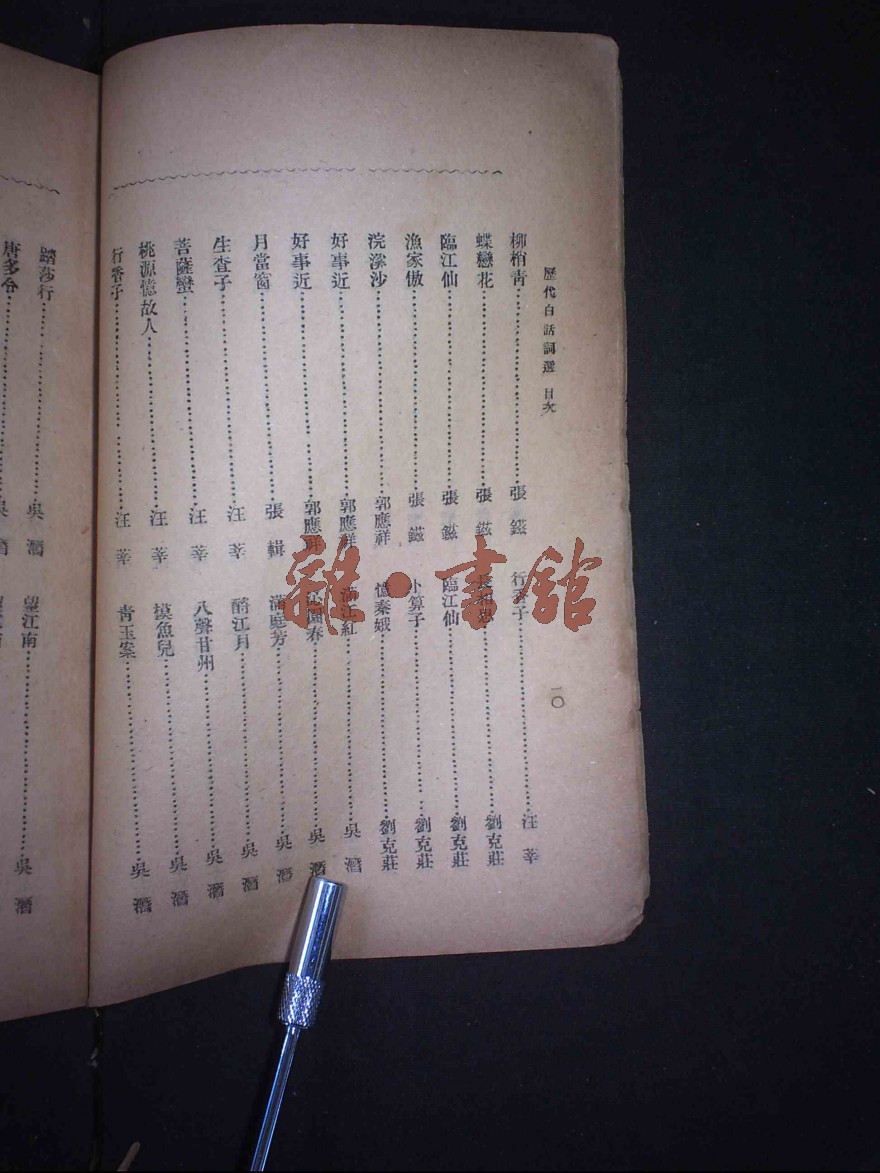 歷代白話詞選 目次
一〇
柳梢青 張鎡
蝶戀花 張鎡
臨江仙 張鎡
漁家傲 張鎡
浣溪沙 郭應祥
好事近 郭應祥
好事近 郭應祥
月當窗 張輯
生查子 汪莘
菩薩蠻 汪莘
桃源憶故人 汪莘
行香子 汪莘
行香子 汪莘
長相思 劉克莊
臨江仙 劉克莊
卜算子 劉克莊
憶秦娥 劉克莊
滿江紅 吳潛
沁園春 吳潛
滿庭芳 吳潛
酹江月 吳潛
八聲甘州 吳潛
摸魚兒 吳潛
青玉案 吳潛
踏莎行 吳潛
唐多令 吳
望江南 吳潛
雜·書館